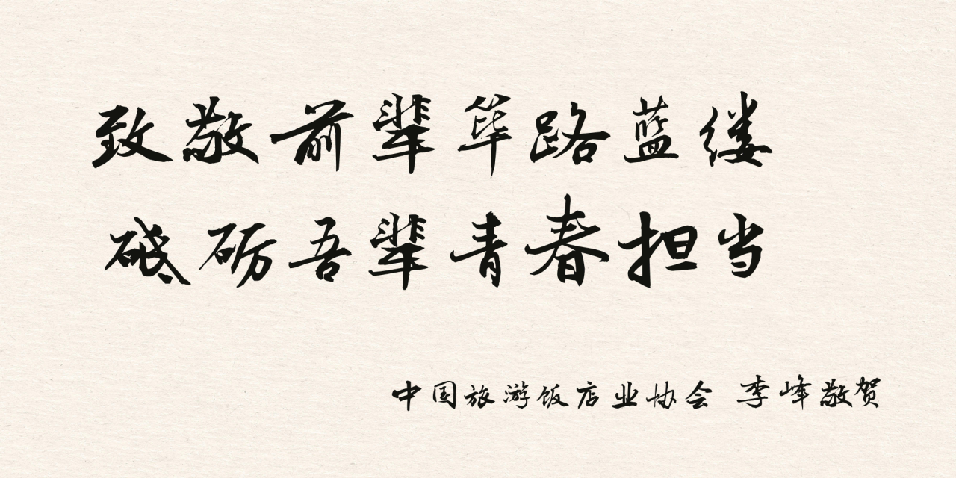 致敬前辈筚路蓝缕
砥砺吾辈青春担当
中国旅游饭店业协会 李峰敬贺